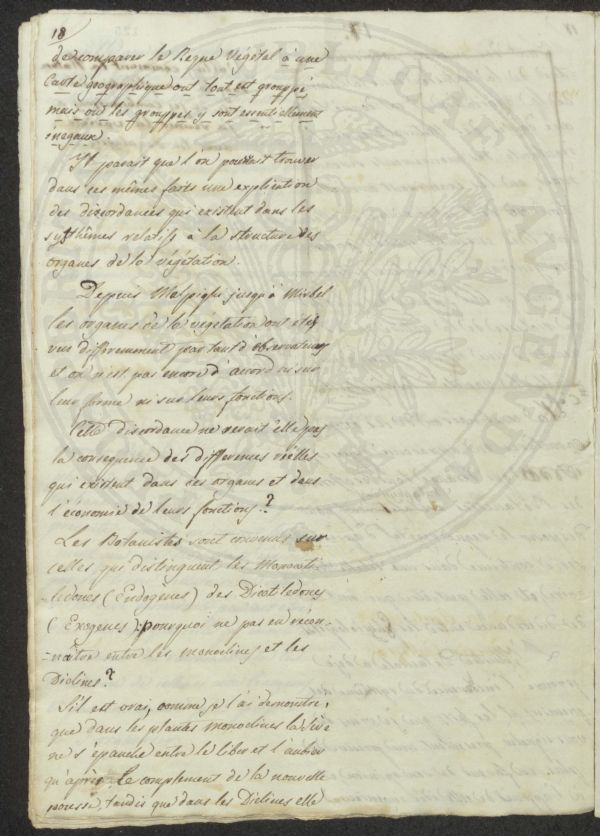 18
de comparer le Regne Végétal à une
Carte geographique ou tout est grouppé
mais out les grouppes y sont essentiellement
inegaux.
Il parait que l'on pourrait trouver
dans ces mêmes faits une explication
des discordances qui existent dans les
systhêmes relatifs à la structure des
organes de la végétation.
Depuis Malpighi jusqu'à Mirbel
les organes de la végétation ont étés
vus differemment par tant d'observateurs
et on n'est pas encore d'accord ni sur
leur forme ni sur leurs fonctions.
Cette discordance ne serait elle pas
la consequence des differences réelles
qui existent dans ces organes et dans
l'économie de leurs fonctions?
Les Botanistes sont convenus sur
celles qui distinguent les Monocoti-
-ledones (Endogènes) des Dicotiledones
(Exogenes) pourquoi ne pas en récon-
-naître entre les monoclines et les
Diclines?
S'il est vrai, comme je l'ai demontre,
que dans les plantes monoclines la Sève
ne s'épanche entre le liber et l'aubier
qu'après le complement de la nouvelle
pousse, tandis que dans les Diclines elle